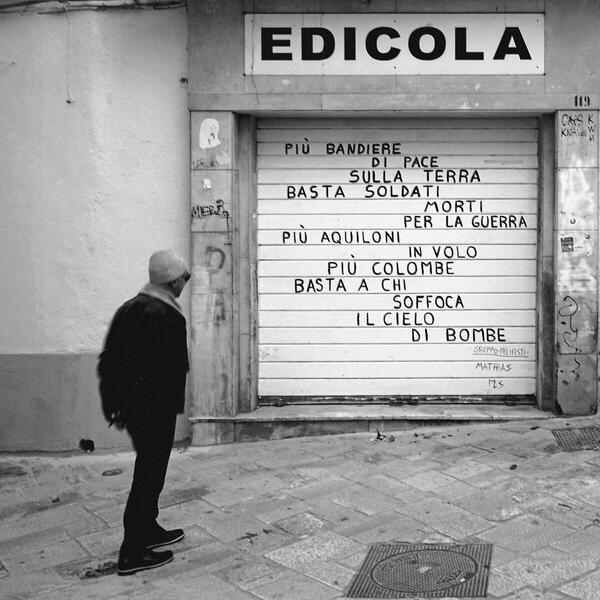 EDICOLA
119
PIÙ BANDIERE
DI PACE
SULLA TERRA
BASTA SOLDATI
MORTI
PER LA GUERRA
PIÙ AQUILONI
IN VOLO
PIÙ COLOMBE
BASTA A CHI
SOFFOCA
IL CIELO
DI BOMBE
MATHIAS